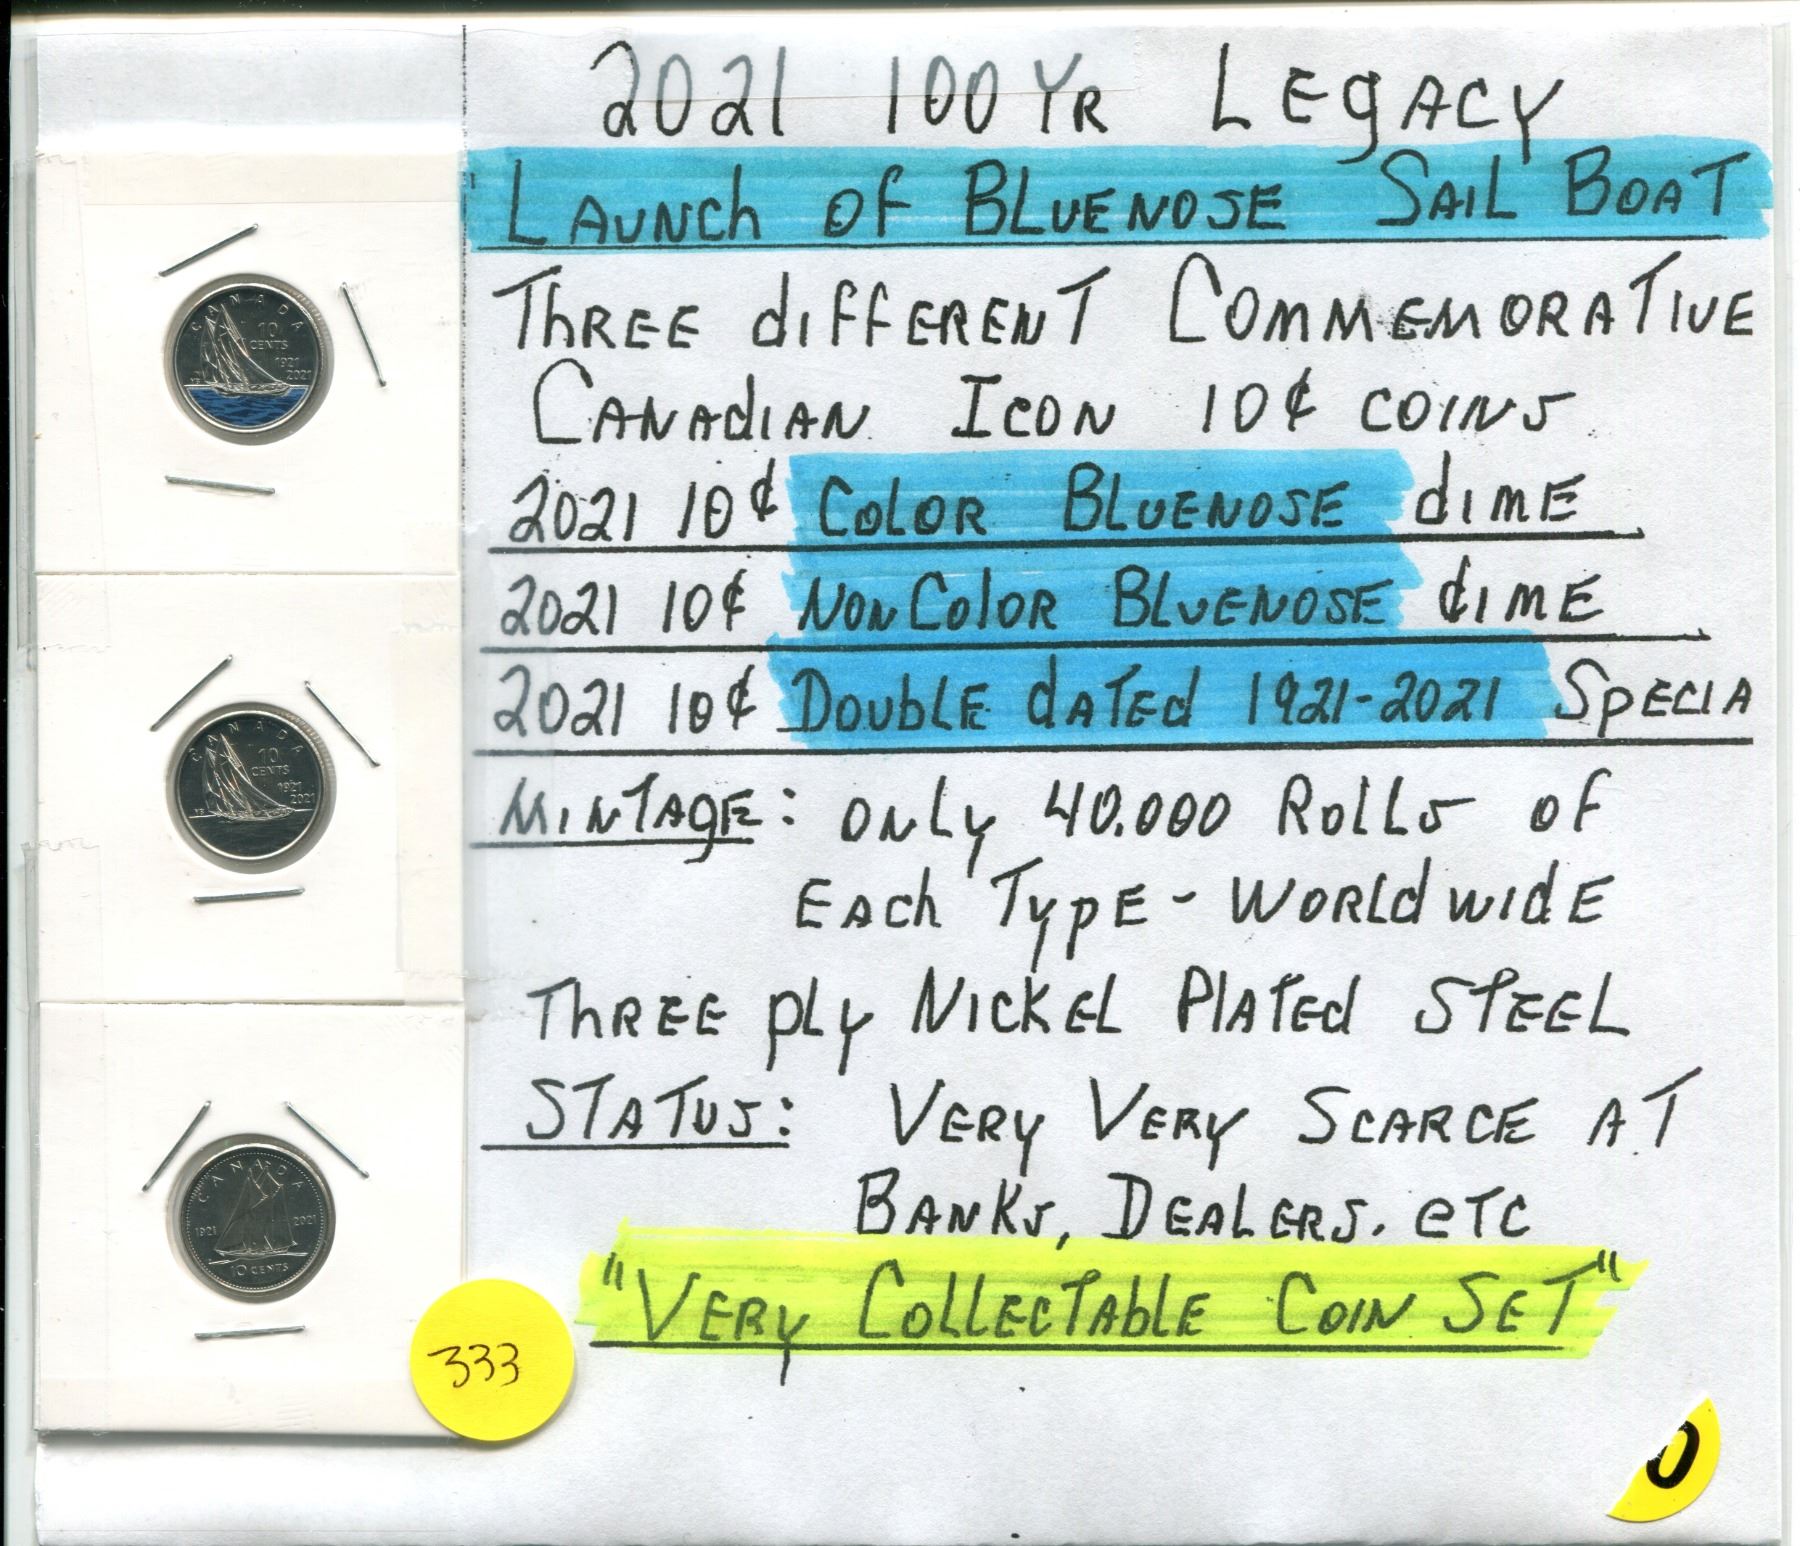 2021 100 YR LEGACY
LAUNCH OF BLUENOSE SAIL BOAT
THREE dIFFERENT COMMEMORATIVE
CANAdIAN ICON 10¢ COINS
2021 10¢ COLOR BLUENOSE dIME
2021 10¢ NON COLOR BLUENOSE dIME
2021 10¢ DOUBLE dATEd 1921-2021 SPECIA
MINTAGE: ONLY 40.000 ROLLS OF
EACH TYPE - WORLdWIdE
THREE PLY NICKEL PLATEd STEEL
STATUS: VERY VERY SCARCE AT
BANKS, DEALERS. ETC
"VERY COLLECTABLE COIN SET"
CANADA
10
CENTS
1921
2021
CANADA
10
CENTS
1921
2021
CANADA
1921 2021
10 CENTS
333
0